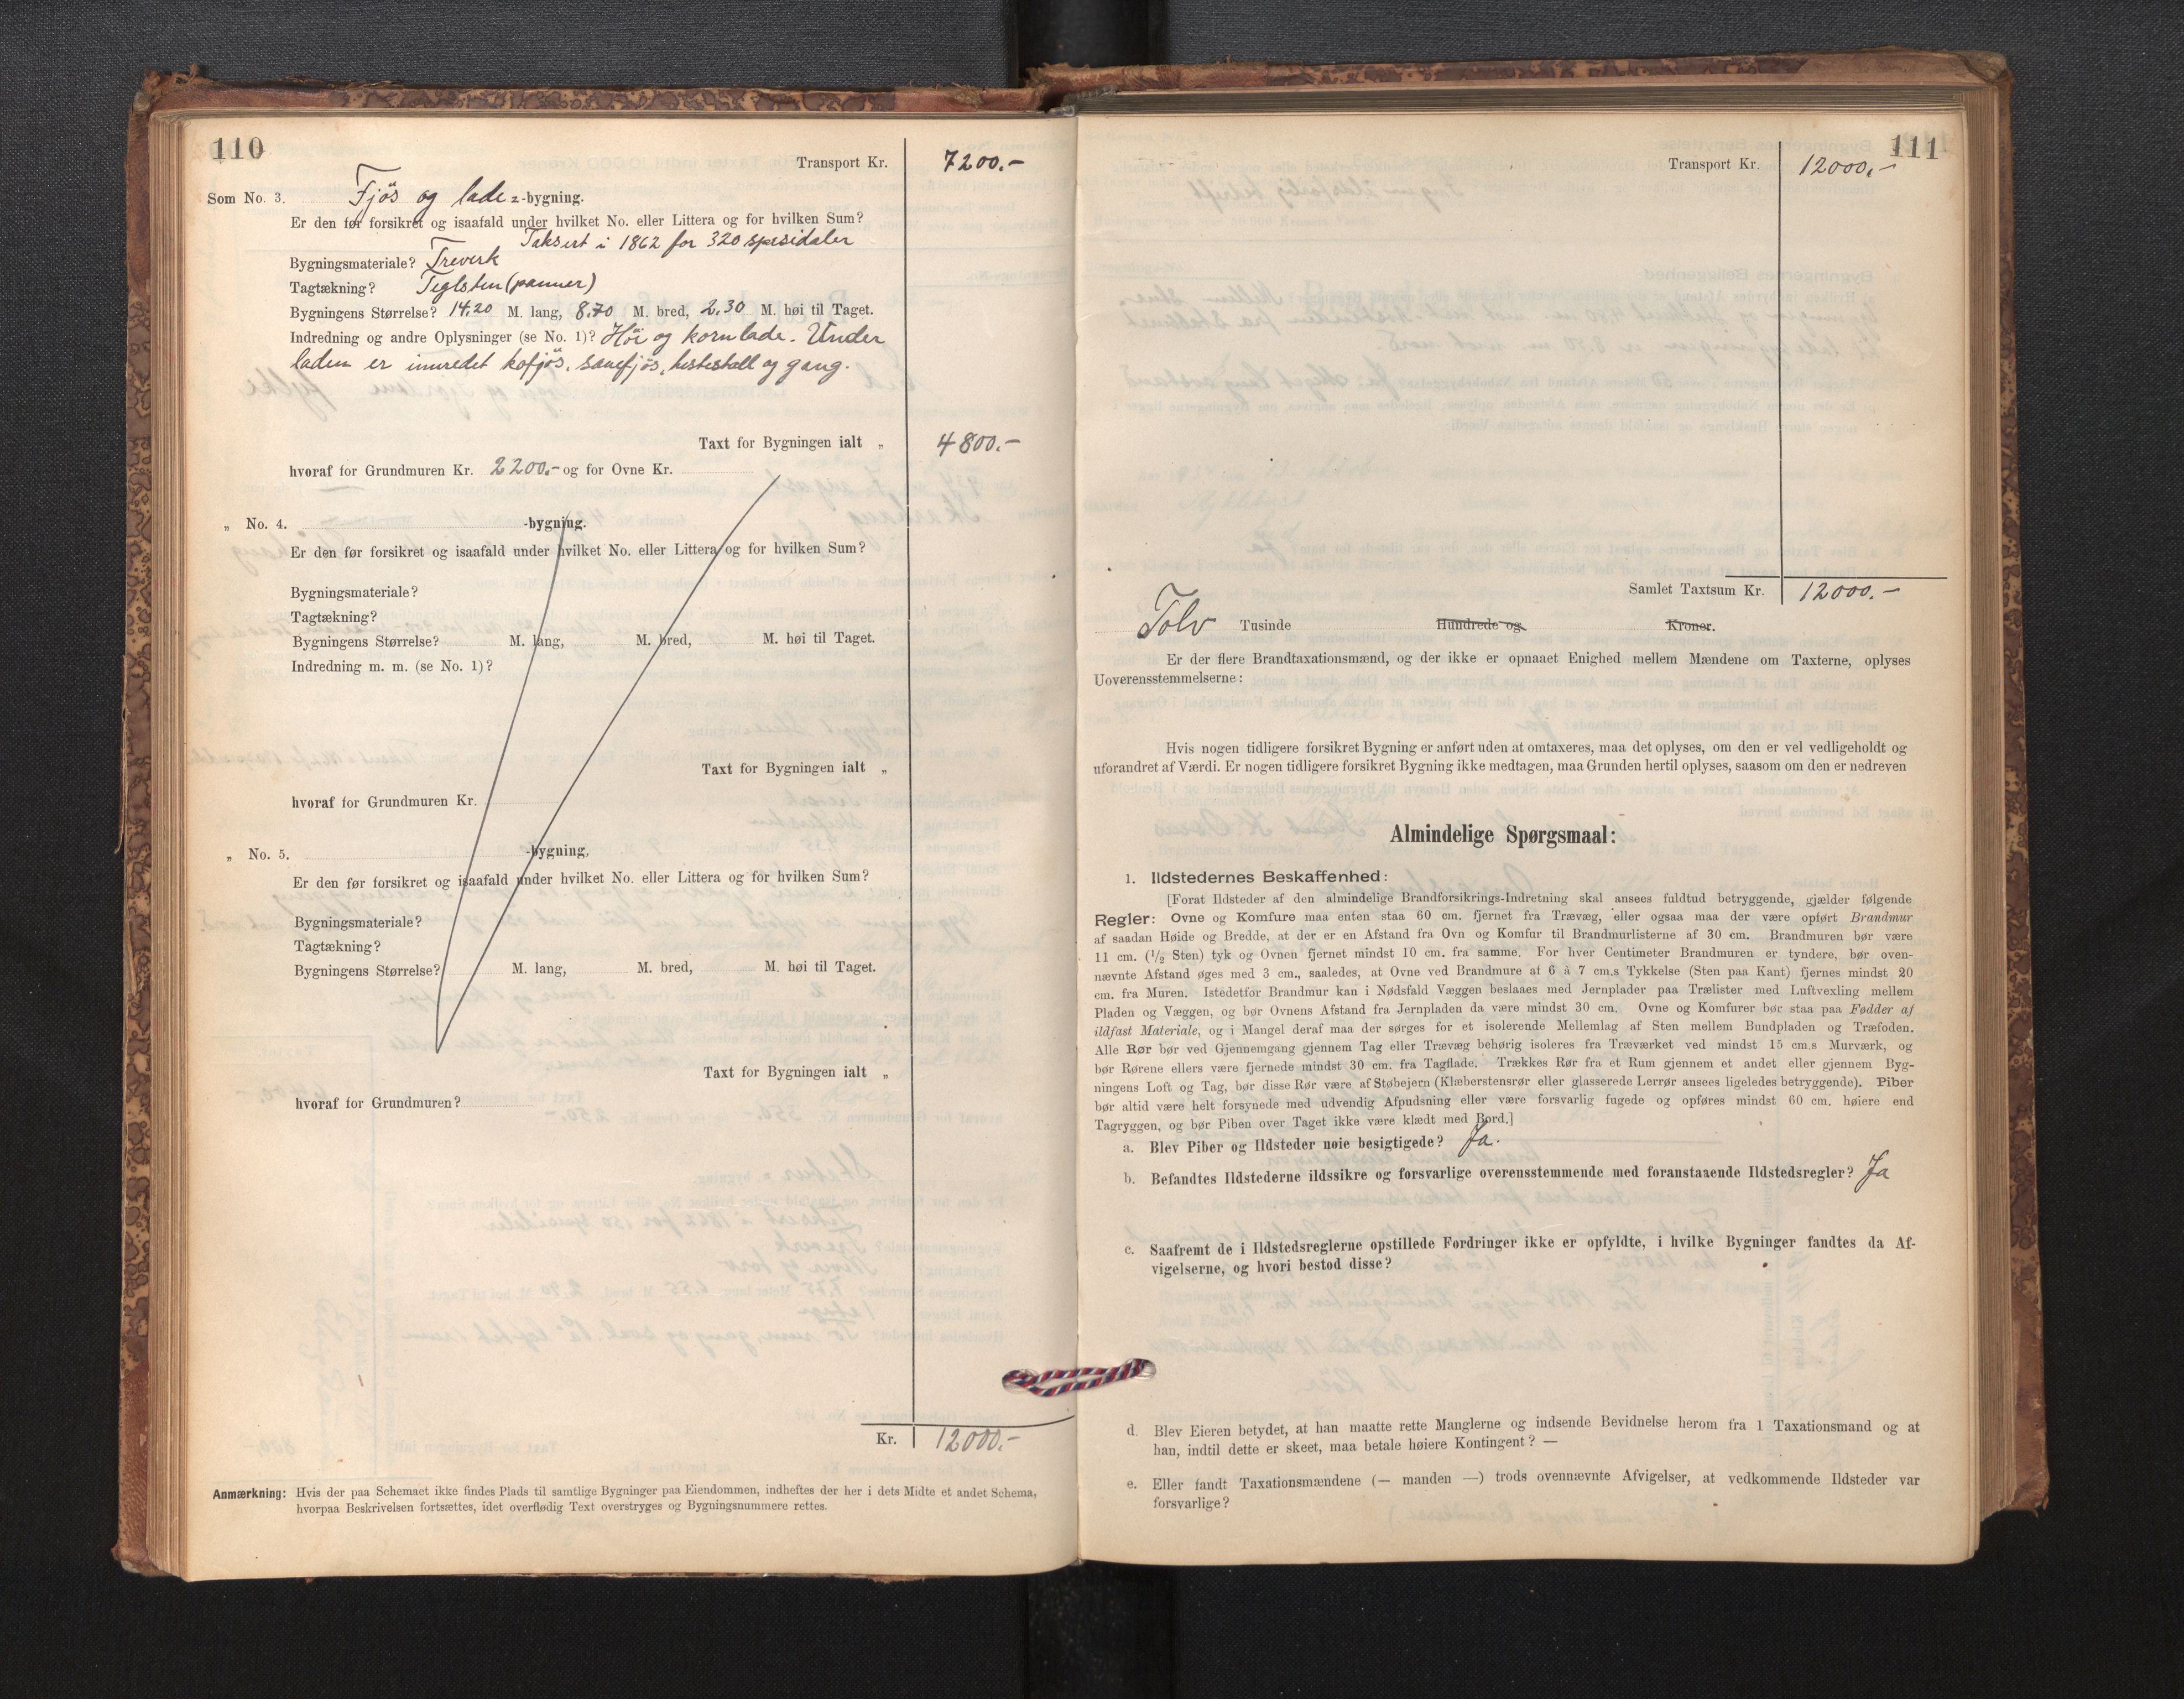 110
Transport Kr. 7200.-
Som No. 3. Fjös og lade=-bygning.
Er den før forsikret og isaafald under hvilket No. eller Littera og for hvilken Sum?
Taksert i 1862 for 320 spesidaler
Bygningsmateriale? Treverk
Tagtækning? Teglsten (panner)
Bygningens Størrelse? 14.20 M. lang, 8.70 M. bred, 2.30 M. høi til Taget.
Indredning og andre Oplysninger (se No. 1)? Höi og kornlade. Under
laden er innredet kofjös, sauefjös, hestestall og gang.
Taxt for Bygningen ialt „ 4800.-
hvoraf for Grundmuren Kr. 2200.- og for Ovne Kr.
„ No. 4. -bygning.
Er den før forsikret og isaafald under hvilket No. eller Littera og for hvilken Sum?
Bygningsmateriale?
Tagtækning?
Bygningens Størrelse? M. lang, M. bred, M. høi til Taget.
Indredning m. m. (se No. 1)?
Taxt for Bygningen ialt „
hvoraf for Grundmuren Kr.
„ No. 5. -bygning,
Er den før forsikret og isaafald under hvilket No. eller Littera og for hvilken Sum?
Bygningsmateriale?
Tagtækning?
Bygningens Størrelse? M. lang, M. bred, M. høi til Taget.
Taxt for Bygningen ialt „
hvoraf for Grundmuren?
Kr. 12000.-
Anmærkning: Hvis der paa Schemaet ikke findes Plads til samtlige Bygninger paa Eiendommen, indheftes der her i dets Midte et andet Schema,
hvorpaa Beskrivelsen fortsættes, idet overflødig Text overstryges og Bygningsnummere rettes.
111
Transport Kr. 12000.-
Samlet Taxtsum Kr. 12000.-
Tolv Tusinde Hundrede og Kroner.
Er der flere Brandtaxationsmænd, og der ikke er opnaaet Enighed mellem Mændene om Taxterne, oplyses
Uoverensstemmelserne:
Hvis nogen tidligere forsikret Bygning er anført uden at omtaxeres, maa det oplyses, om den er vel vedligeholdt og
uforandret af Værdi. Er nogen tidligere forsikret Bygning ikke medtagen, maa Grunden hertil oplyses, saasom om den er nedreven
Almindelige Spørgsmaal:
1. Ildstedernes Beskaffenhed:
[Forat Ildsteder af den almindelige Brandforsikrings-Indretning skal ansees fuldtud betryggende, gjælder følgende
Regler: Ovne og Komfure maa enten staa 60 cm. fjernet fra Trævæg, eller ogsaa maa der være opført Brandmur
af saadan Høide og Bredde, at der er en Afstand fra Ovn og Komfur til Brandmurlisterne af 30 cm. Brandmuren bør være
11 cm. (1/2 Sten) tyk og Ovnen fjernet mindst 10 cm. fra samme. For hver Centimeter Brandmuren er tyndere, bør oven-
nævnte Afstand øges med 3 cm., saaledes, at Ovne ved Brandmure af 6 à 7 cm.s Tykkelse (Sten paa Kant) fjernes mindst 20
cm. fra Muren. Istedetfor Brandmur kan i Nødsfald Væggen beslaaes med Jernplader paa Trælister med Luftvexling mellem
Pladen og Væggen, og bør Ovnens Afstand fra Jernpladen da være mindst 30 cm. Ovne og Komfurer bør staa paa Fødder af
ildfast Materiale, og i Mangel deraf maa der sørges for et isolerende Mellemlag af Sten mellem Bundpladen og Træfoden.
Alle Rør bør ved Gjennemgang gjennem Tag eller Trævæg behørig isoleres fra Træværket ved mindst 15 cm.s Murværk, og
bør Rørene ellers være fjernede mindst 30 cm. fra Tagflade. Trækkes Rør fra et Rum gjennem et andet eller gjennem Byg-
ningens Loft og Tag, bør disse Rør være af Støbejern (Klæberstensrør eller glasserede Lerrør ansees ligeledes betryggende). Piber
bør altid være helt forsynede med udvendig Afpudsning eller være forsvarlig fugede og opføres mindst 60 cm. høiere end
Tagryggen, og bør Piben over Taget ikke være klædt med Bord.]
a. Blev Piber og Ildsteder nøie besigtigede? Ja.
b. Befandtes Ildstederne ildssikre og forsvarlige overensstemmende med foranstaaende Ildstedsregler? Ja
c. Saafremt de i Ildstedsreglerne opstillede Fordringer ikke er opfyldte, i hvilke Bygninger fandtes da Af-
vigelserne, og hvori bestod disse?
d. Blev Eieren betydet, at han maatte rette Manglerne og indsende Bevidnelse herom fra 1 Taxationsmand og at
han, indtil dette er skeet, maa betale høiere Kontingent? —
e. Eller fandt Taxationsmændene (— manden —) trods ovennævnte Afvigelser, at vedkommende Ildsteder var
forsvarlige?